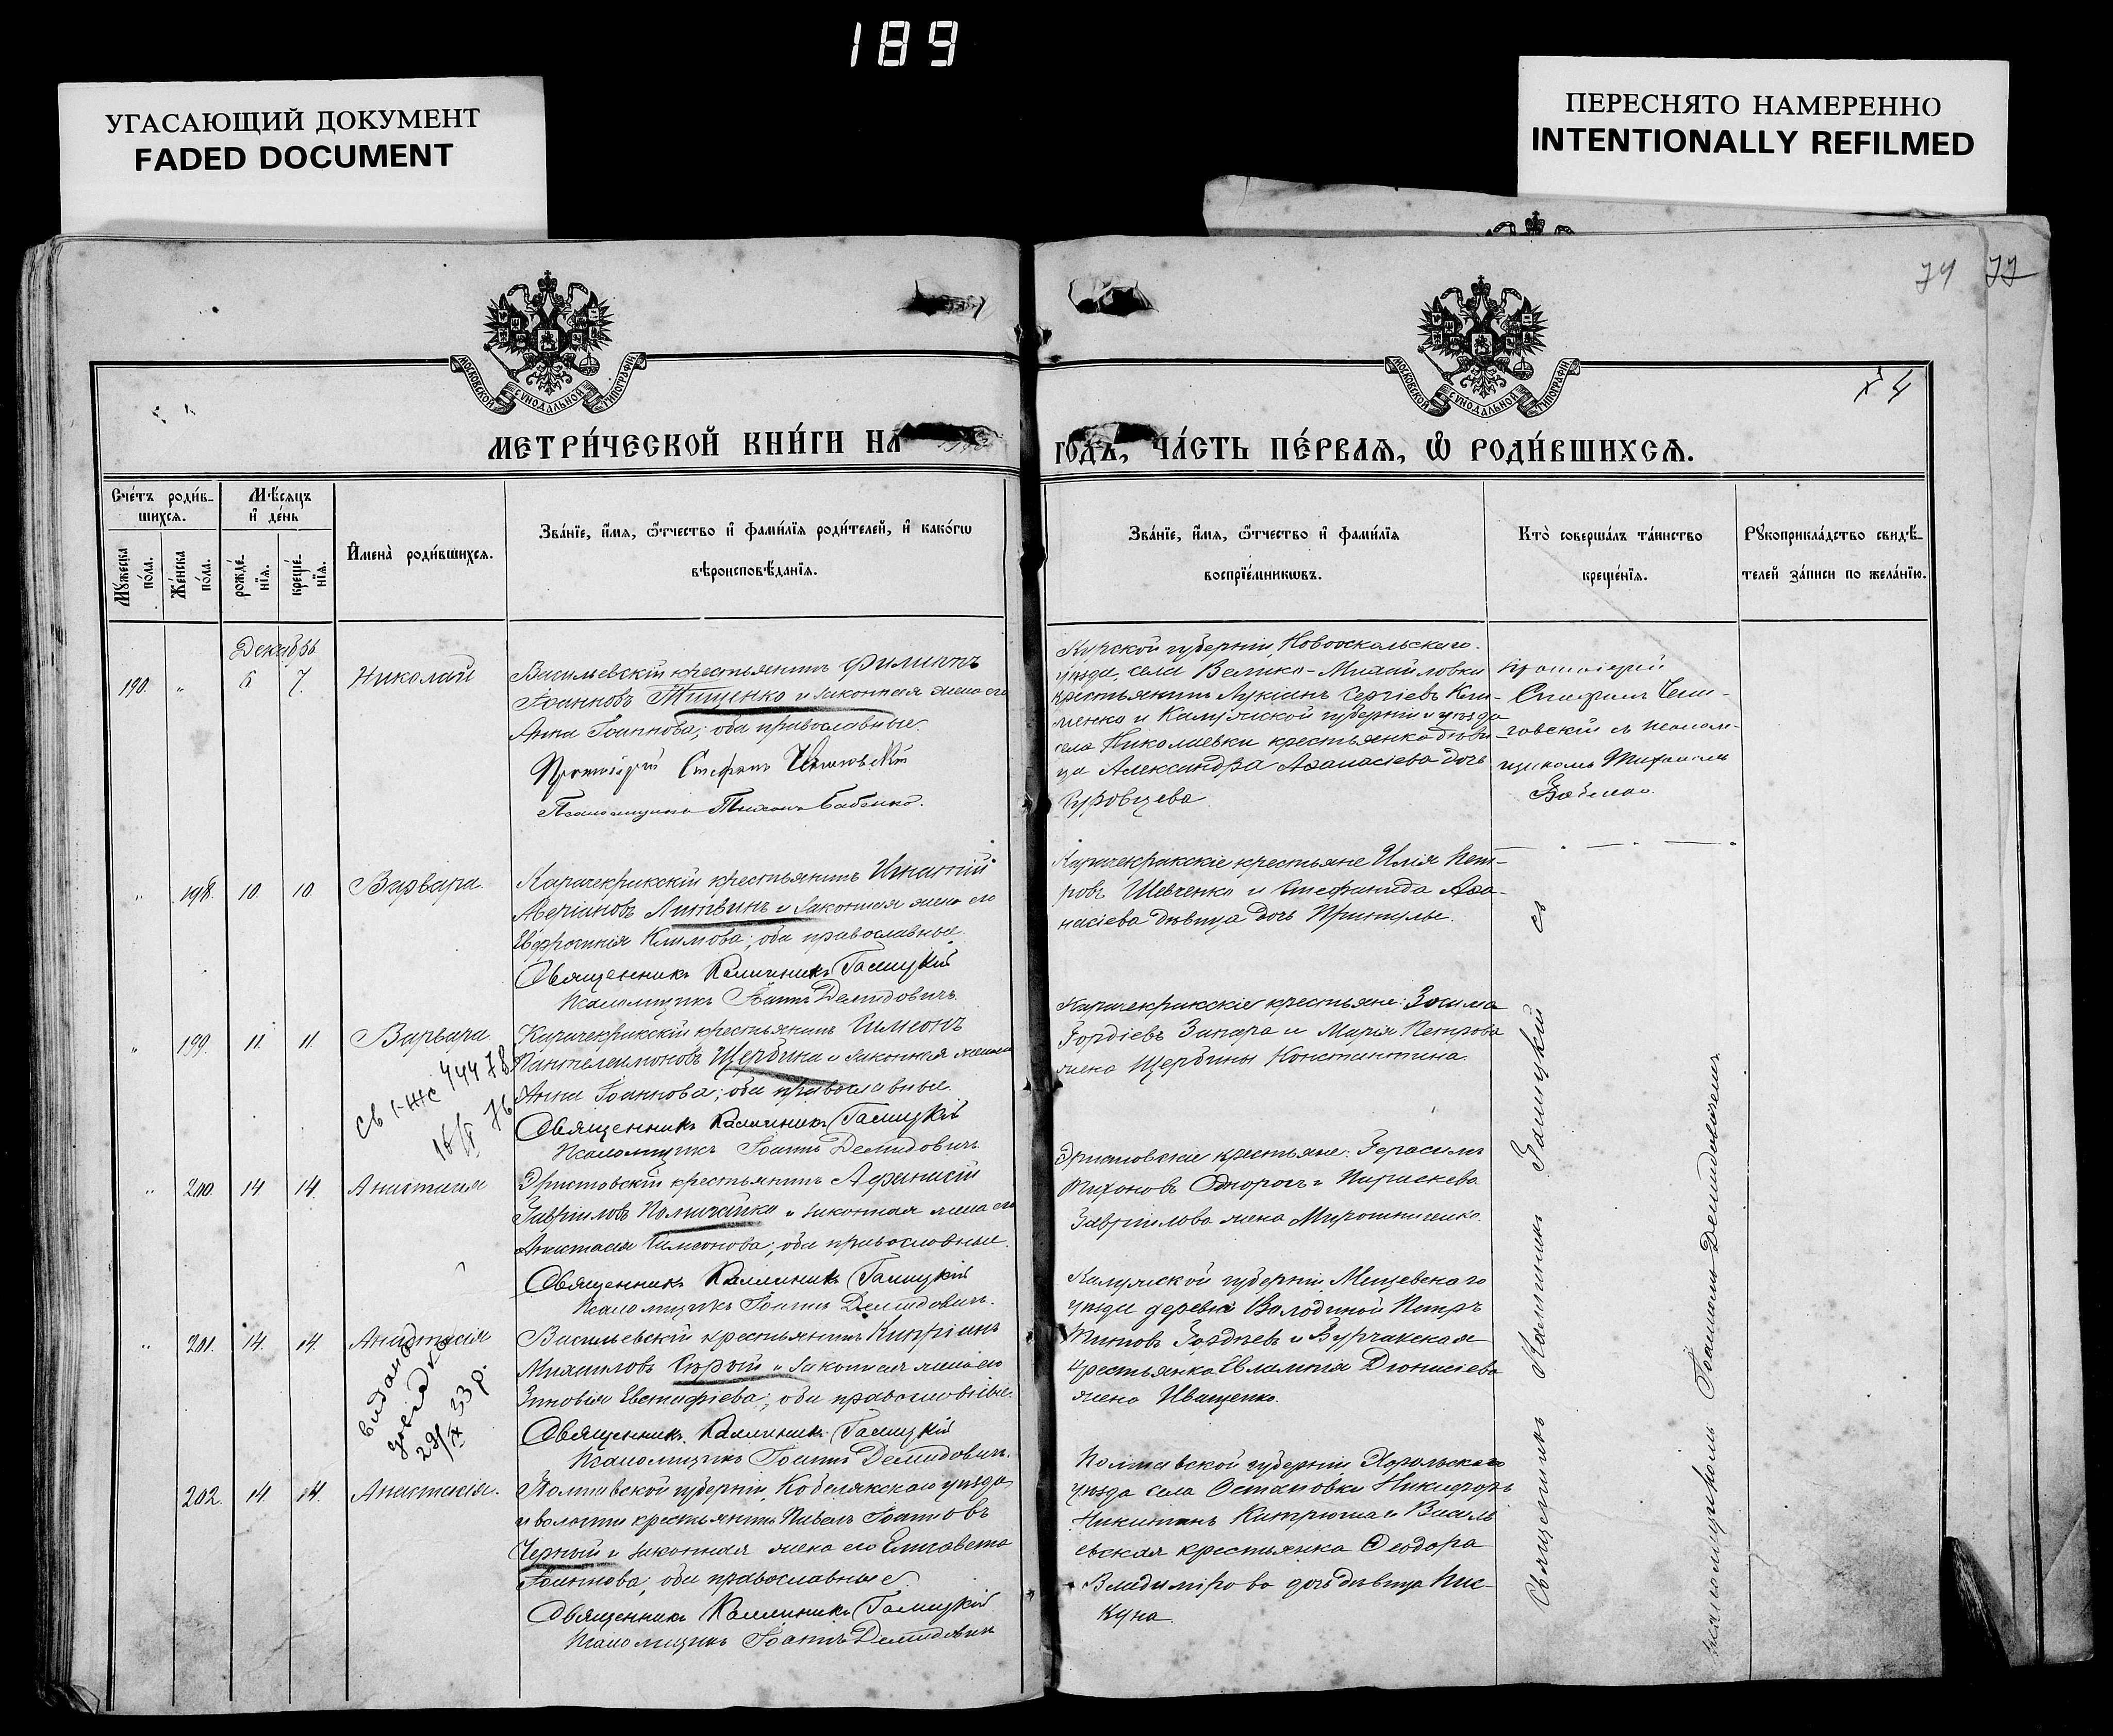 189
УГАСАЮЩИЙ ДОКУМЕНТ
FADED DOCUMENT
ПЕРЕСНЯТО НАМЕРЕННО
INTENTIONALLY REFILMED
74 77
74
МОСКОВСКОЙ СѴНОДАЛЬНОЙ ТИПОГРАФІИ
МОСКОВСКОЙ СѴНОДАЛЬНОЙ ТИПОГРАФІИ
МЕТРИ́ЧЕСКОЙ КНИ́ГИ НА
ГОДЪ, ЧА́СТЬ ПЕ́РВАѦ, Ѽ РОДИ́ВШИХСѦ.
Счéтъ роди́в-
шихся.
Мꙋ́жеска по́ла.
Же́нска по́ла.
Мѣ́сяцъ
и҆ де́нь
рожде́-нїѧ.
креще́-нїѧ.
И҆мена̀ роди́вшихсѧ.
Зва́нїе, и҆́мѧ, ѻ҆́тчество и҆ фами́лїѧ роди́телей, и҆ како́гѡ
вѣроисповѣ́данїѧ.
Зва́нїе, и҆́мѧ, ѻ҆́тчество и҆ фами́лїѧ
воспрїе́мникѡвъ.
Кто̀ соверша́лъ та́инство
креще́нїѧ.
Рꙋкоприкла́дство свидѣ́-
телей за́писи по жела́нїю.
Декабрь
190. " 6 7. Николай
Васильевскій крестьянинъ Филиппъ
Іоанновъ Тищенко и законная жена его
Анна Іоаннова; оба православные.
Протоіерей Стефанъ
Псаломщикъ Тихонъ Бабенко.
Курской губерніи, Новооскольскаго
уѣзда, села Велико-Михайловки
крестьянинъ Лукіанъ Сергіевъ Кли-
менко и Калужской губерніи и уѣзда
села Николаевки крестьянка дѣви-
ца Александра Аѳанасіева дочь
Протоіерей
Стефанъ
говскій съ псалом-
щикомъ Тихономъ
Бабенко.
" 198. 10. 10. Варвара.
Карачекракскій крестьянинъ Игнатій
Аверіановъ Литвинъ и законная жена его
Евфросинія Климова; оба православные.
Священникъ Каллиникъ Галицкій
Псаломщикъ Іоаннъ Демидовичъ.
Карачекракскіе крестьяне Илія Пет-
ровъ Шевченко и Стефанида Аѳа-
насіева дѣвица дочь Притулы.
" 199. 11. 11. Варвара.
Св І-ЖС 444781
16/V 76
Карачекракскій крестьянинъ Симеонъ
Пантелеимоновъ Щербина и законная жена его
Анна Іоаннова; оба православные.
Священникъ Каллиникъ Галицкій
Псаломщикъ Іоаннъ Демидовичъ.
Карачекракскіе крестьяне: Зосима
Гордіевъ Запара и Марія Петрова
жена Щербины Константина.
" 200. 14 14. Анастасія
Эристовскій крестьянинъ Аѳанасій
Гавріиловъ и законная жена его
Анастасія Симеонова; оба православные.
Священникъ Каллиникъ Галицкій
Псаломщикъ Іоаннъ Демидовичъ.
Эристовскіе крестьяне: Герасимъ
Тихоновъ Однорогъ и Параскева
Гавріилова жена Мирошниченко.
" 201. 14. 14. Анастасія
видано
довідка
29/IX 33 р.
Васильевскій крестьянинъ Кипріанъ
Михаиловъ Сѣрый и законная жена его
Зиновія Евстафіева; оба православные.
Священникъ Каллиникъ Галицкій
Псаломщикъ Іоаннъ Демидовичъ.
Калужской губерніи, Мещевскаго
уѣзда деревни Володиной Петръ
Титовъ Гордѣевъ и Бурчакская
крестьянка Евлампія Діонисіева
жена Иващенко.
202. 14. 14. Анастасія.
Полтавской губерніи, Кобелякскаго уѣзда
и волости крестьянинъ Павелъ Іоанновъ
Черный и законная жена его Елисавета
Іоаннова; оба православные.
Священникъ Каллиникъ Галицкій
Псаломщикъ Іоаннъ Демидовичъ
Полтавской губерніи Хорольскаго
уѣзда села Остаповки Никифоръ
Никитинъ и Василь-
евская крестьянка Ѳеодора
Владимірова дочь дѣвица Пис-
куна.
Священникъ Каллиникъ Галицкій съ
псаломщикомъ Іоанномъ Демидовичемъ